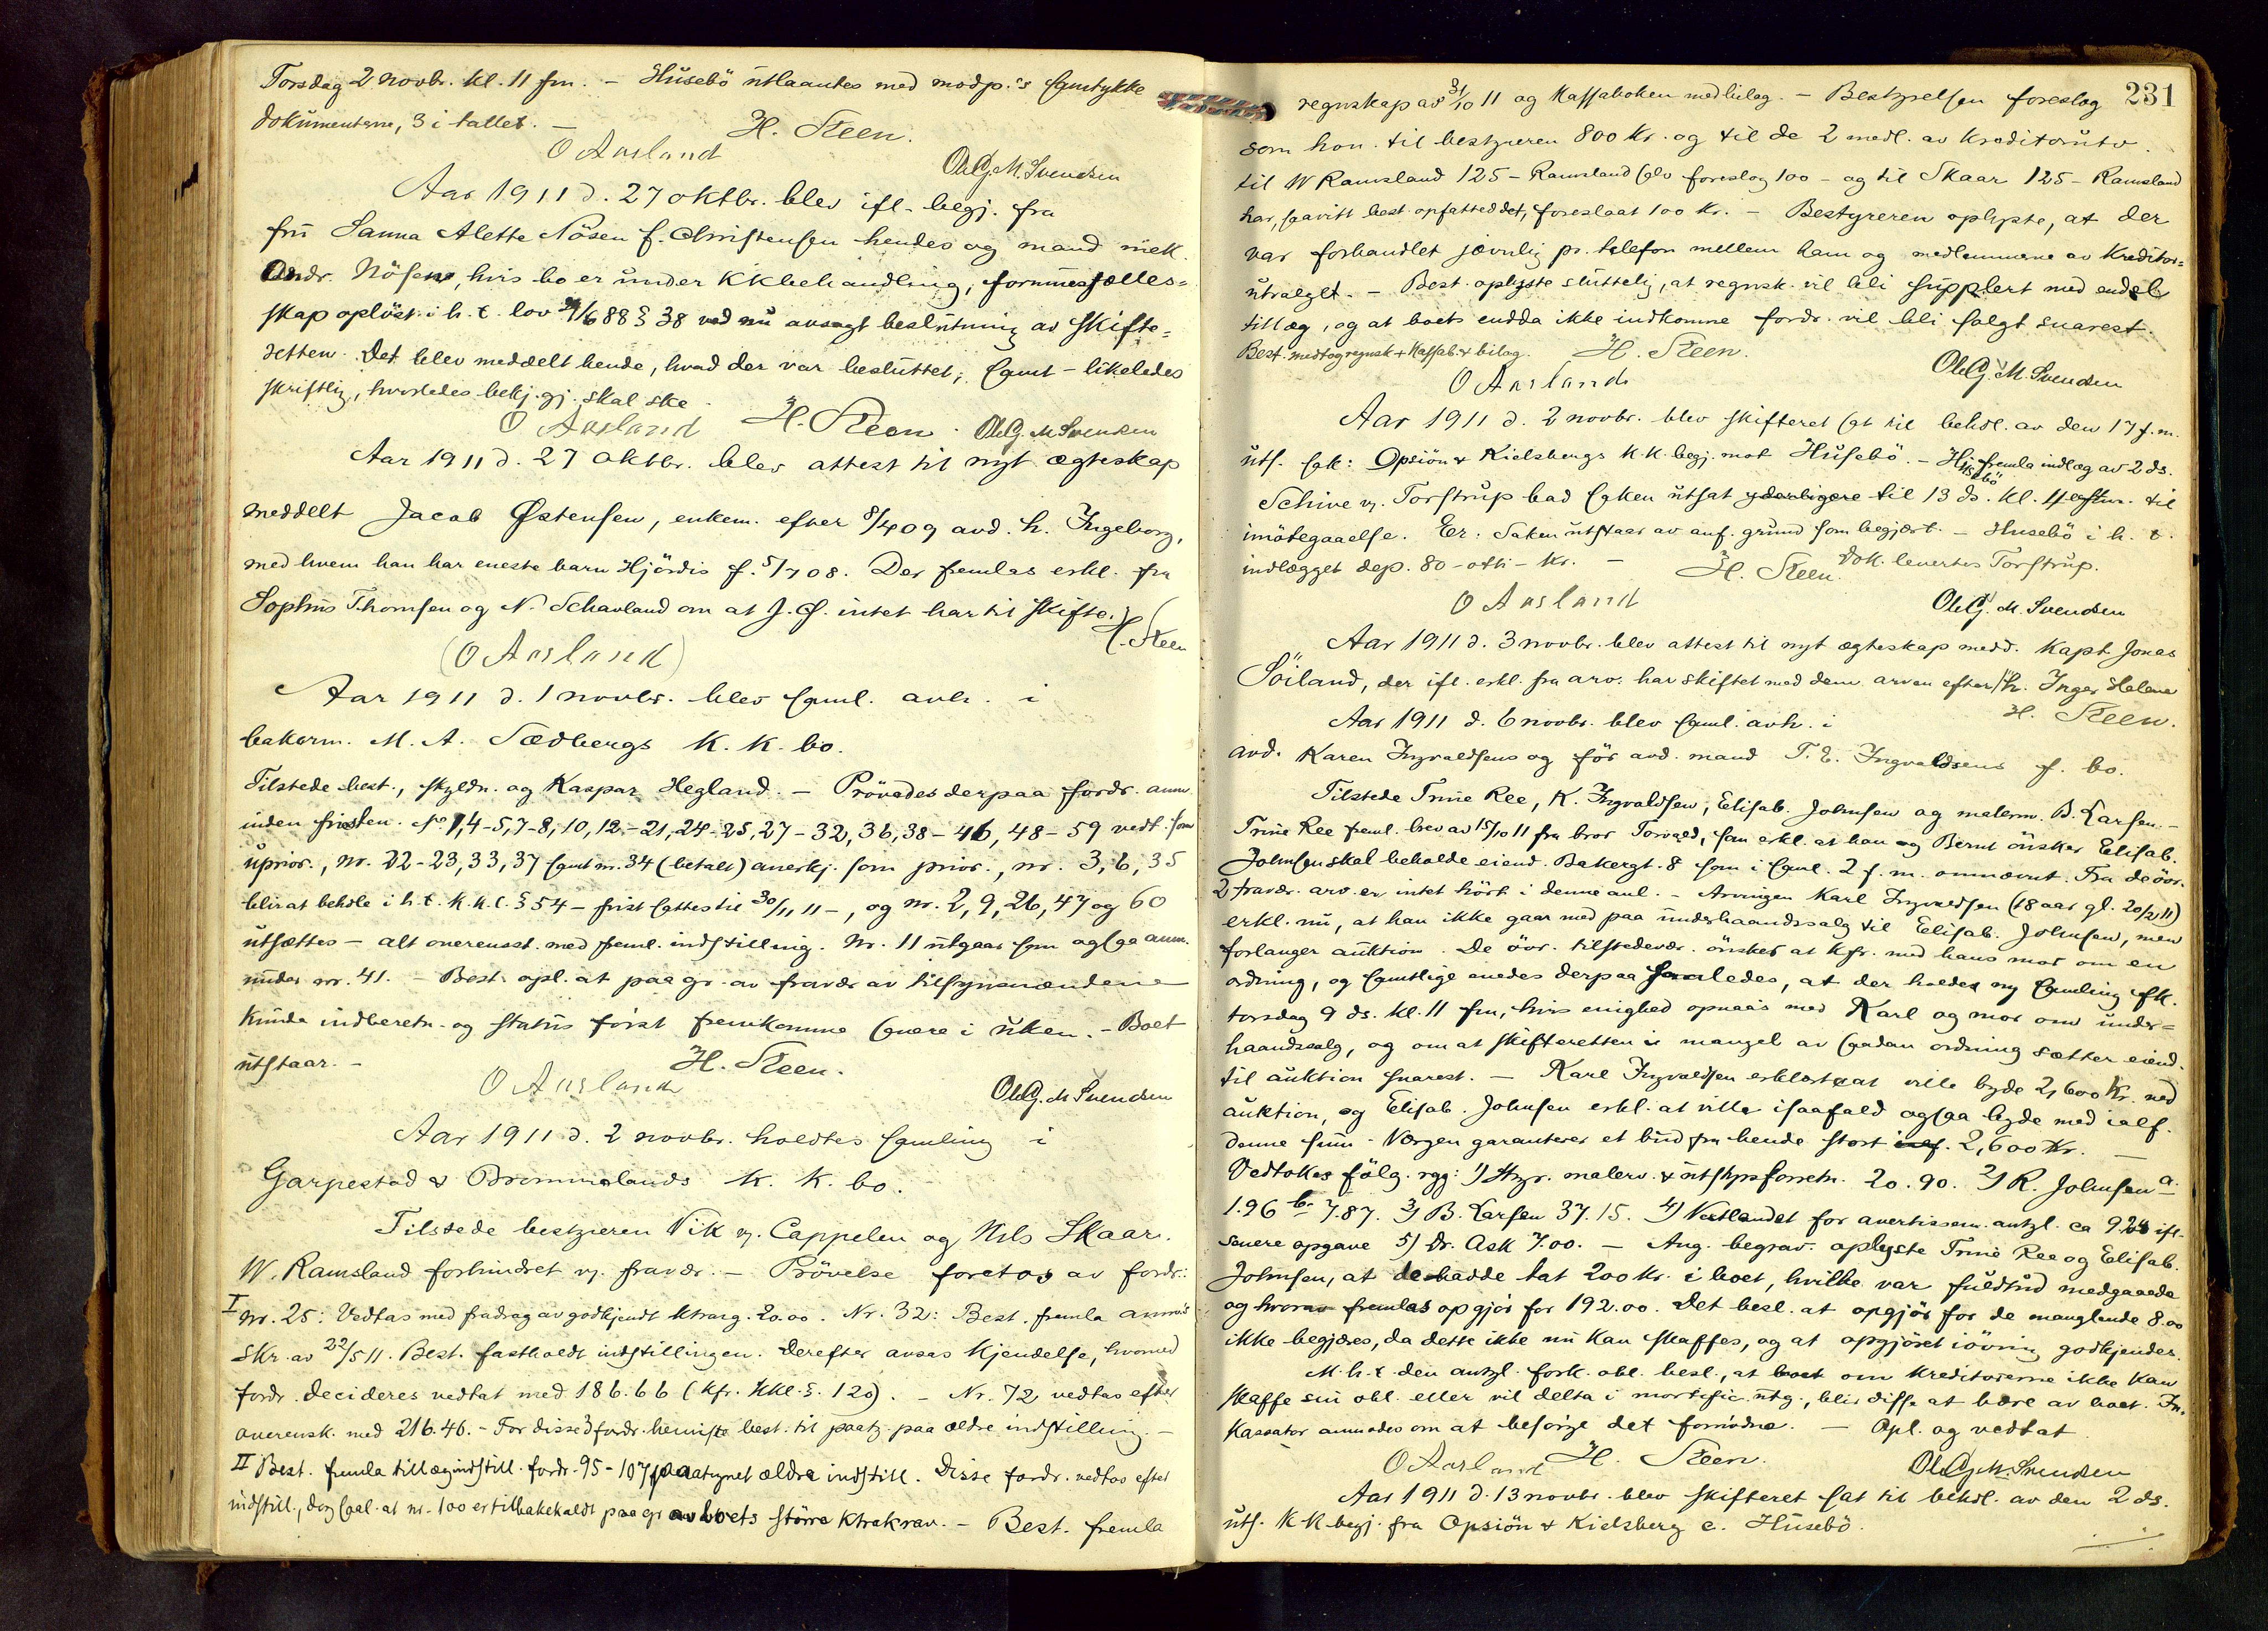 Torsdag 2 novbr. kl. 11 fm. – Husebö utlaantes med modp.'s samtykke
dokumenterne, 3 i tallet. –
H. Steen.
O Aasland
Ole G. M. Svendsen
Aar 1911 d. 27 oktbr. blev ifl. begj. fra
fru Sanna Alette Nösen f. Christensen hendes og mand mek.
Andr. Nösens, hvis bo er under KKbehandling, formuesfælles=
skap oplöst i h. t. lov 29/6 88 § 38 ved nu avsagt beslutning av skifte=
retten. Det blev meddelt hende, hvad der var besluttet, samt – likeledes
skriftlig, hvorledes bekj.gj. skal ske.
O Aasland H. Steen. Ole G. M Svendsen
Aar 1911 d. 27 oktbr. blev attest til nyt ægteskap
meddelt Jacob Østensen, enkem. efter 8/4 09 avd. h. Ingeborg,
med hvem han har eneste barn Hjördis f. 5/7 08. Der fremlas erkl. fra
Sophus Thomsen og N. Schavland om at J. Ø. intet har til skifte.
H. Steen
(O Aasland)
Aar 1911 d. 1 novbr. blev saml. avh. i
bakerm. M. A. Sædbergs K. K. bo.
Tilstede best., skyldn. og Kaspar Hegland. – Prövedes derpaa fordr. anm.
inden fristen. No 1, 4–5, 7–8, 10, 12–21, 24–25, 27–32, 36, 38–46, 48–59 vedt. som
uprior., nr. 22–23, 33, 37 samt nr. 34 (betalt) anerkj. som prior., nr. 3, 6, 35
blir at behdle i h. t. K.K.l. § 54 – frist sattes til 30/11 11 –, og nr. 2, 9, 26, 47 og 60
utsættes – alt overensst. med freml. indstilling. Nr. 11 utgaar som ogsaa anm.
under nr. 41. – Best. opl. at paa gr. av fravær av tilsynsmændene
kunde indberetn. og status först fremkomme senere i uken. – Boet
utstaar. –
H. Steen.
O Aasland
Ole G. M Svendsen
Aar 1911 d. 2 novbr. holdtes samling i
Garpestad & Brommelands K. K. bo.
Tilstede bestyreren Vik v. Cappelen og Nils Skaar.
W. Ramsland forhindret v. fravær. – Prövelse foretas av fordr.:
I nr. 25: Vedtas med fradrag av godkjendt ktrarg. 20.00. Nr. 32: Best. fremla anm's
skr. av 22/5 11. Best. fastholdt indstillingen. Derefter avsas kjendelse, hvorved
fordr. decideres vedtat med 186.66 (kfr. kkl. §. 120). – Nr. 72 vedtas efter
overensk. med 216.46. – For disse 3 fordr. henviste best. til paatg. paa ældre indstilling. –
II Best. fremla tillægindstill. fordr. 95–107 paategnet ældre indstill. Disse fordr. vedtas efter
indstill., dog saal. at nr. 100 er tilbakekaldt paa gr. av boets större ktrakrav. – Best. fremla
231
regnskap av 31/10 11 og kassaboken med bilag. – Bestyrelsen foreslog
som hon. til bestyreren 800 kr. og til de 2 medl. av kreditorutv.
til W Ramsland 125 – Ramsland selv foreslog 100 – og til Skaar 125 – Ramsland
har, saavitt best. opfattet det, foreslaat 100 kr. – Bestyreren oplyste, at der
var forhandlet jævnlig pr. telefon mellem ham og medlemmerne av kreditor=
utvalget. – Best. oplyste sluttelig, at regnsk. vil bli supplert med endel
tillæg, og at boets endda ikke indkomne fordr. vil bli solgt snarest.
Best. medtog regnsk + kassab. + bilag. H. Steen.
O Aasland
Ole G. M. Svendsen
Aar 1911 d. 2 novbr. blev skifteret sat til behdl. av den 17 f. m.
uts. sak: Opsiön & Kielsbergs K.K. begj. mot Husebö. – Hj. fremla indlæg av 2 ds.
Husebö
Schive v. Torstrup bad saken utsat yderligere til 13 ds. kl. 4 eftm. til
imötegaaelse. Er: Saken utstaar av anf. grund som begjært. – Husebö i h. t.
indlægget dep. 80 – otti – kr. – Dok. levertes Torstrup.
H. Steen.
O Aasland
Ole G. M. Svendsen
Aar 1911 d. 3 novbr. blev attest til nyt ægteskap medd. kapt. Jonas
Söiland, der ifl. erkl. fra arv. har skiftet med dem arven efter h. Inger Helene
H. Steen.
Aar 1911 d. 6 novbr. blev saml. avh. i
avd. Karen Ingvaldsens og för avd. mand T. E. Ingvaldsens f. bo.
Tilstede Trine Ree, K. Ingvaldsen, Elisab. Johnsen og malerm. B. Larsen. –
Trine Ree freml. brev av 15/10 11 fra bror Torvald, som erkl. at han og Bernt önsker Elisab.
Johnsen skal beholde eiend. Bakergt. 8 som i saml. 2 f. m. omnævnt. Fra de övr.
2 fravær. arv. er intet hört i denne anl. – Arvingen Karl Ingvaldsen (18 aar gl. 20/2 11)
erkl. nu, at han ikke gaar med paa underhaandssalg til Elisab. Johnsen, men
forlanger auktion. De övr. tilstedevær. önsket at kfr. med hans mor om en
ordning, og samtlige enedes derpaa saaledes, at der holdes ny samling sk.
torsdag 9 ds. kl. 11 fm, hvis enighed opnaaes med Karl og mor om under=
haandssalg, og om at skifteretten i mangel av saadan ordning sætter eiend.
til auktion snarest. – Karl Ingvaldsen erklærte at ville byde 2,600 kr. ved
auktion, og Elisab. Johnsen erkl. at ville isaafald ogsaa byde med ialf.
denne sum. Værgen garanterer et bud fra hende stort ialf. 2,600 kr. –
Vedtokes fölg. rgg: 1) Styr. malerv. & utskyrsforretn. 20.90. 2) R. Johnsen a.
1.96 b. 7.87. 3) B. Larsen 37.15. 4) Vestlandet for avertissem. antgl. ca 9.24 ifl.
senere opgave 5) Dr. Ask 7.00. – Ang. begrav. oplyste Trine Ree og Elisab.
Johnsen, at de hadde tat 200 kr. i boet, hvilke var fuldtud medgaaede
og hvorav fremlas opgjör for 192.00. Det besl. at opgjör for de manglende 8.00
ikke begjæres, da dette ikke nu kan skaffes, og at opgjöret iövrig godkjendes.
M. h. t. den antgl. fork. obl. besl., at boet om kreditorerne ikke kan
skaffe sin obl. eller vil delta i mortific. utg., blir disse at bære av boet. In=
kassator anmodes om at besörge det fornödne. – Opl. og vedtat.
O Aasland H. Steen.
Ole G. M. Svendsen
Aar 1911 d. 13 novbr. blev skifteret sat til behdl. av den 2 ds.
uts. K K begj. fra Opsiön & Kielsberg c. Husebö.